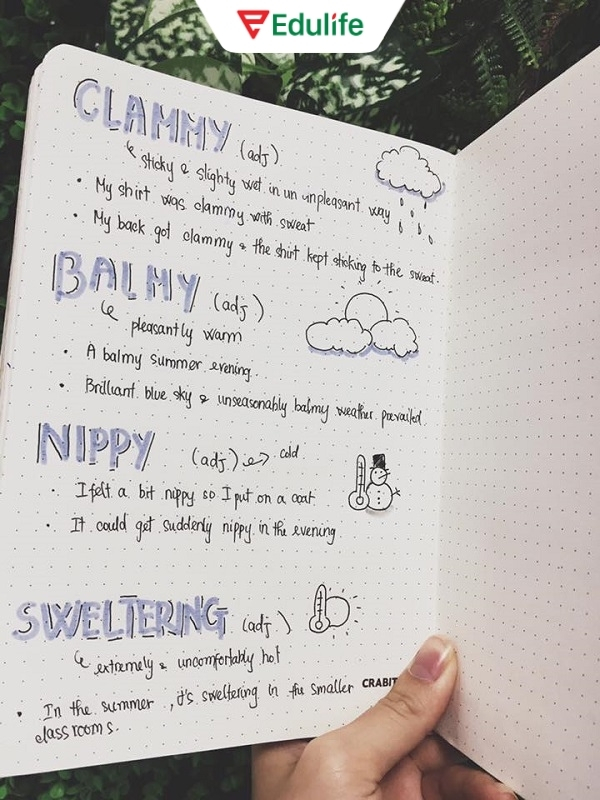 Edulife
CLAMMY (adj)
sticky & slighty wet in un unpleasant way
• My shirt was clammy with sweat
• My back got clammy & the shirt kept sticking to the sweat.
BALMY (adj)
pleasantly warm
• A balmy summer evening.
• Brilliant blue sky & unseasonably balmy weather prevailed.
NIPPY (adj) cold
• I felt a bit nippy so I put on a coat
• It could get suddenly nippy in the evening
SWELTERING (adj)
extremely & uncomfortably hot
• In the summer, it's sweltering in the smaller
classrooms.
CRABIT